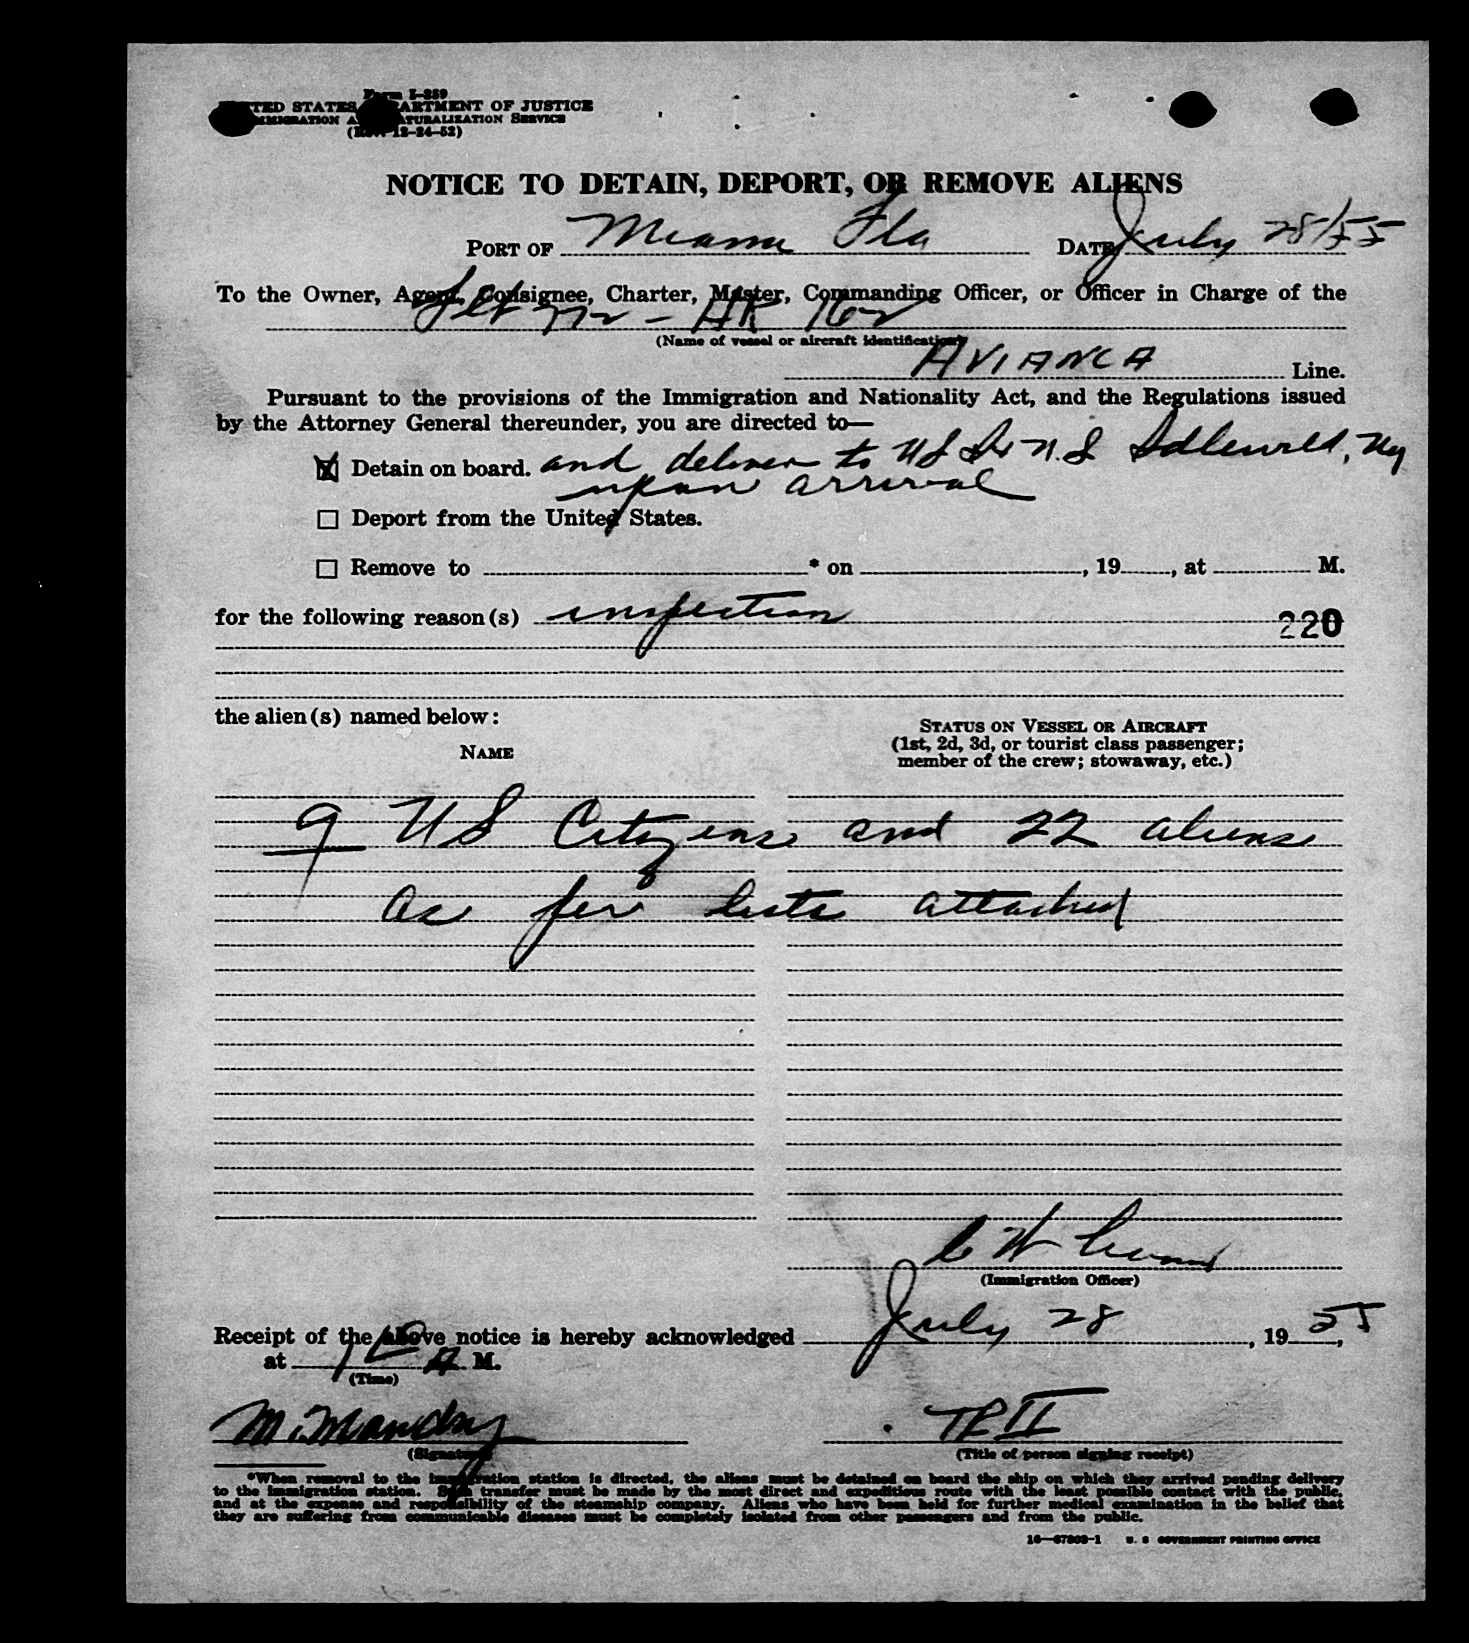 Form I-259
UNITED STATES DEPARTMENT OF JUSTICE
IMMIGRATION AND NATURALIZATION SERVICE
(Rev. 12-24-52)
NOTICE TO DETAIN, DEPORT, OR REMOVE ALIENS
PORT OF Miami Fla DATE July 28/55
To the Owner, Agent, Consignee, Charter, Master, Commanding Officer, or Officer in Charge of the
772 - HK 162
(Name of vessel or aircraft identification)
AVIANCA Line.
Pursuant to the provisions of the Immigration and Nationality Act, and the Regulations issued
by the Attorney General thereunder, you are directed to—
Detain on board. and deliver to US I & N.S Idlewild, NY
upon arrival
Deport from the United States.
Remove to * on , 19 , at M.
for the following reason(s) inspection 220
the alien(s) named below:
NAME
STATUS ON VESSEL OR AIRCRAFT
(1st, 2d, 3d, or tourist class passenger;
member of the crew; stowaway, etc.)
9 US Citizens and 22 aliens
as per lists attached
C W
(Immigration Officer)
Receipt of the above notice is hereby acknowledged July 28, 1955,
at A M.
(Time)
M. Mandry
(Signature)
TR II
(Title of person signing receipt)
*When removal to the immigration station is directed, the aliens must be detained on board the ship on which they arrived pending delivery
to the immigration station. Such transfer must be made by the most direct and expeditious route with the least possible contact with the public,
and at the expense and responsibility of the steamship company. Aliens who have been held for further medical examination in the belief that
they are suffering from communicable diseases must be completely isolated from other passengers and from the public.
U. S. GOVERNMENT PRINTING OFFICE